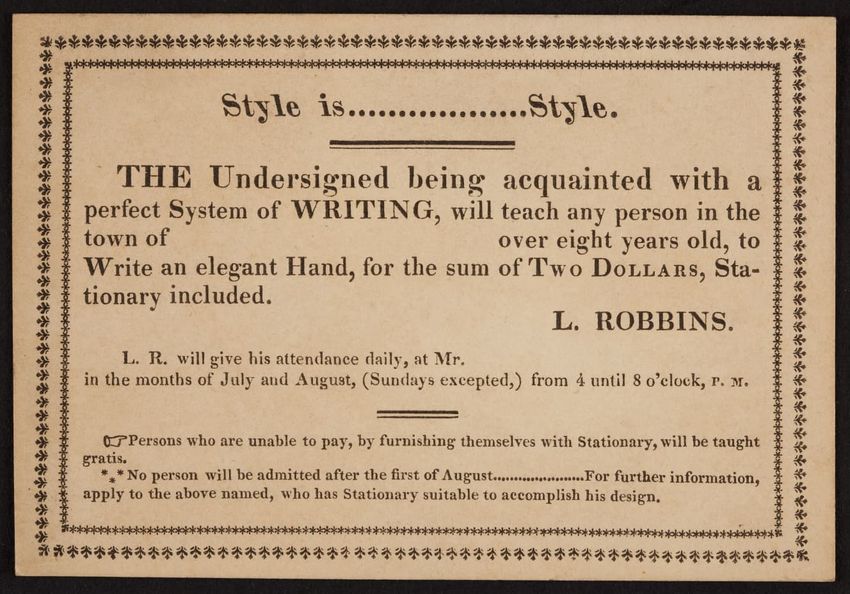 Style is..................Style.
THE Undersigned being acquainted with a
perfect System of WRITING, will teach any person in the
town of over eight years old, to
Write an elegant Hand, for the sum of TWO DOLLARS, Sta-
tionary included.
L. ROBBINS.
L. R. will give his attendance daily, at Mr.
in the months of July and August, (Sundays excepted,) from 4 until 8 o'clock, P. M.
☞Persons who are unable to pay, by furnishing themselves with Stationary, will be taught
gratis.
*⁎*No person will be admitted after the first of August.....................For further information,
apply to the above named, who has Stationary suitable to accomplish his design.